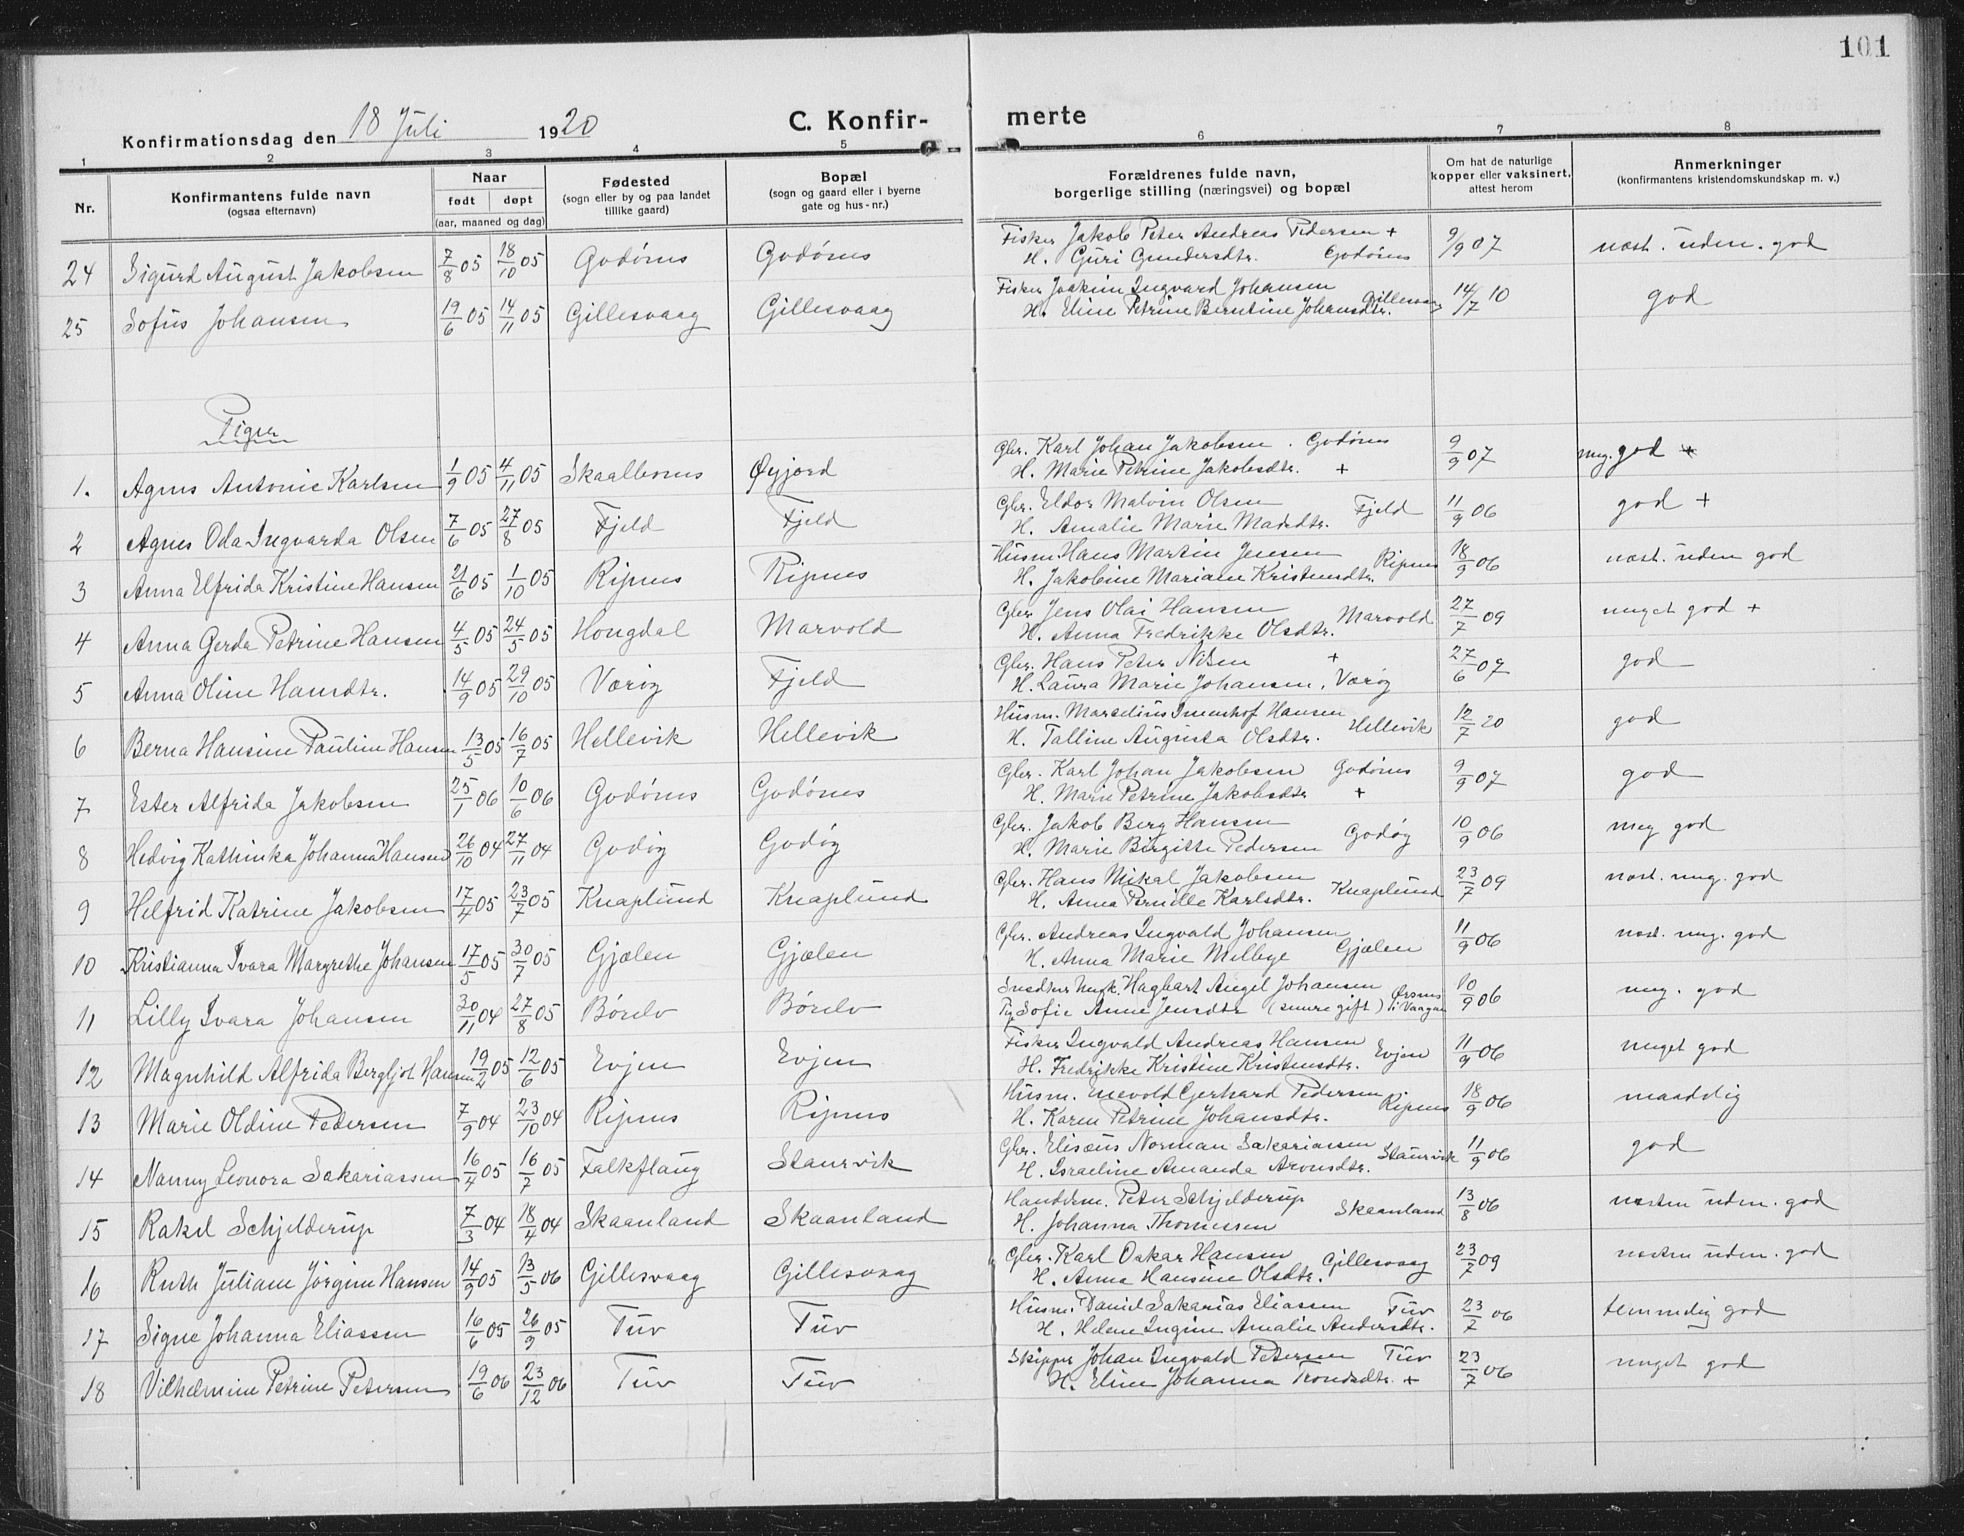 101
Konfirmationsdag den 18 Juli 1920 C. Konfirmerte
1 2 3 4 5 6 7 8
Nr. Konfirmantens fulde navn (ogsaa efternavn) Naar født døpt (aar, maaned og dag) Fødested (sogn eller by og paa landet tillike gaard) Bopæl (sogn og gaard eller i byerne gate og hus-nr.) Forældrenes fulde navn, borgerlige stilling (næringsvei) og bopæl Om hat de naturlige kopper eller vaksinert, attest herom Anmerkninger (konfirmantens kristendomskundskap m. v.)
24 Sigurd August Jakobsen 7/8 05 18/10 05 Godønes Godønes Fisker Jakob Peter Andreas Pedersen + H. Guri Gundersdtr. Godønes 9/9 07 næst. uden. god
25 Sofus Johansen 19/6 05 14/11 05 Gillesvaag Gillesvaag Fisker Joakim Ingvard Johansen H. Eline Petrine Berntine Johansdtr. Gillesvaag 14/7 10 god
Piger
1. Agnes Antonie Karlsen 1/9 05 4/11 05 Skaalbones Øyjord Gbr. Karl Johan Jakobsen. Godønes H. Marie Petrine Jakobsdtr. + 9/9 07 meg. god +
2 Agnes Oda Ingvarda Olsen 7/6 05 27/8 05 Fjeld Fjeld Gbr. Eldor Malvin Olsen H. Amalie Marie Madsdtr. Fjeld 11/9 06 god +
3 Anna Elfrida Kristine Hansen 21/6 05 1/10 05 Ripnes Ripnes Husm. Hans Martin Jensen H. Jakobine Mariane Kristensdtr. Ripnes 18/9 06 næst. uden god
4 Anna Gerda Petrine Hansen 4/5 05 24/5 05 Hongdal Marvold Gbr. Jens Olai Hansen H. Anna Fredrikke Olsdtr. Marvold 27/7 09 meget god +
5 Anna Oline Hansdtr. 14/9 05 29/10 05 Værøy Fjeld Gbr. Hans Peter Nilsen + H. Laura Marie Johansen, Værøy 27/6 07 god
6 Berna Hansine Pauline Hansen 13/5 05 16/7 05 Hellevik Hellevik Husm. Marselius Imenhof Hansen H. Talline Augusta Olsdtr. Hellevik 12/7 20 god
7 Ester Alfrida Jakobsen 25/1 06 10/6 06 Godønes Godønes Gbr. Karl Johan Jakobsen Godønes H. Marie Petrine Jakobsdtr + 9/9 07 god
8 Hedvig Kathinka Johanna Hansen 26/10 04 27/11 04 Godøy Godøy Gbr. Jakob Berg Hansen H. Marie Birgitte Pedersen Godøy 10/9 06 meg god
9 Helfrid Katrine Jakobsen 17/4 05 23/7 05 Knaplund Knaplund Gbr. Hans Mikal Jakobsen H. Anna Pernille Karlsdtr. Knaplund 23/7 09 næst. meg. god
10 Kristianna Ivara Margrethe Johansen 17/5 05 30/7 05 Gjælen Gjælen Gbr. Andreas Ingvald Johansen H. Anna Marie Mellbye Gjælen 11/9 06 næst. meg. god
11 Lilly Ivara Johansen 30/11 04 27/8 05 Børelv Børelv Ungk. Hagbart Angel Johansen Pig. Sofie Anne Jensdtr (senere gift) Ørsnes i Vaagan 10/9 06 meg. god
12 Magnhild Alfrida Bergljot Hansen 19/2 05 12/6 05 Evjen Evjen Fisker Ingvald Andreas Hansen H. Fredrikke Kristine Kristensdtr. Evjen 11/9 06 meget god
13 Marie Oldine Pedersen 7/9 04 23/10 04 Ripnes Ripnes Husm. Enevold Gerhard Pedersen H. Karen Petrine Johansdtr. Ripnes 18/9 06 maadelig
14 Nanny Leonora Sakariassen 16/4 05 16/7 05 Falkflaug Staurvik Gbr. Elisæus Norman Sakariassen H. Israeline Amanda Arensdtr. Staurvik 11/9 06 god
15 Rakel Schjelderup 7/3 04 18/4 04 Skaanland Skaanland Handelsm. Peter Schjelderup H. Johanna Thomessen Skaanland 13/8 06 næsten uden. god
16 Ruth Juliane Jørgine Hansen 14/9 05 13/5 06 Gillesvaag Gillesvaag Gbr. Karl Oskar Hansen H. Anna Hansine Olsdtr. Gillesvaag 23/7 09 næsten uden. god
17 Signe Johanna Eliassen 16/6 05 26/9 05 Tuv Tuv Husm. Daniel Sakarias Eliassen Tuv H. Helene Ingine Amalie Andersdtr. 23/7 06 temmelig god
18 Vilhelmine Petrine Petersen 19/6 06 23/12 06 Tuv Tuv Skipper Johan Ingvald Petersen Tuv H. Eline Johanna Trondsdtr. + 23/7 06 meget god